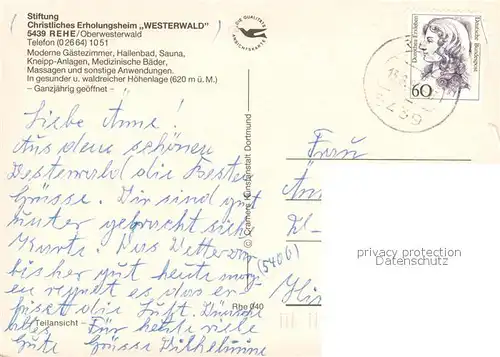 Stiftung
Christliches Erholungsheim „WESTERWALD"
5439 REHE/Oberwesterwald
Telefon (0 26 64) 10 51
Moderne Gästezimmer, Hallenbad, Sauna,
Kneipp-Anlagen, Medizinische Bäder,
Massagen und sonstige Anwendungen.
In gesunder u. waldreicher Höhenlage (620 m ü. M.)
– Ganzjährig geöffnet –
DIE QUALITÄTS
ANSICHTSKARTE
Deutsche Bundespost
60
5439
Liebe Anne!
Aus dem schönen
Westerwald die besten
Grüsse. Wir sind gut
runter gebracht
Das Wetter war
bisher gut heute morg
en regnet es das er
frischt die Luft. Wünsche
alles Für heute viele
Gute Grüsse Wilhelmine
Teilansicht –
Rhe 040
© Cramers Kunstanstalt Dortmund
Frau
(5406)
privacy protection
Datenschutz